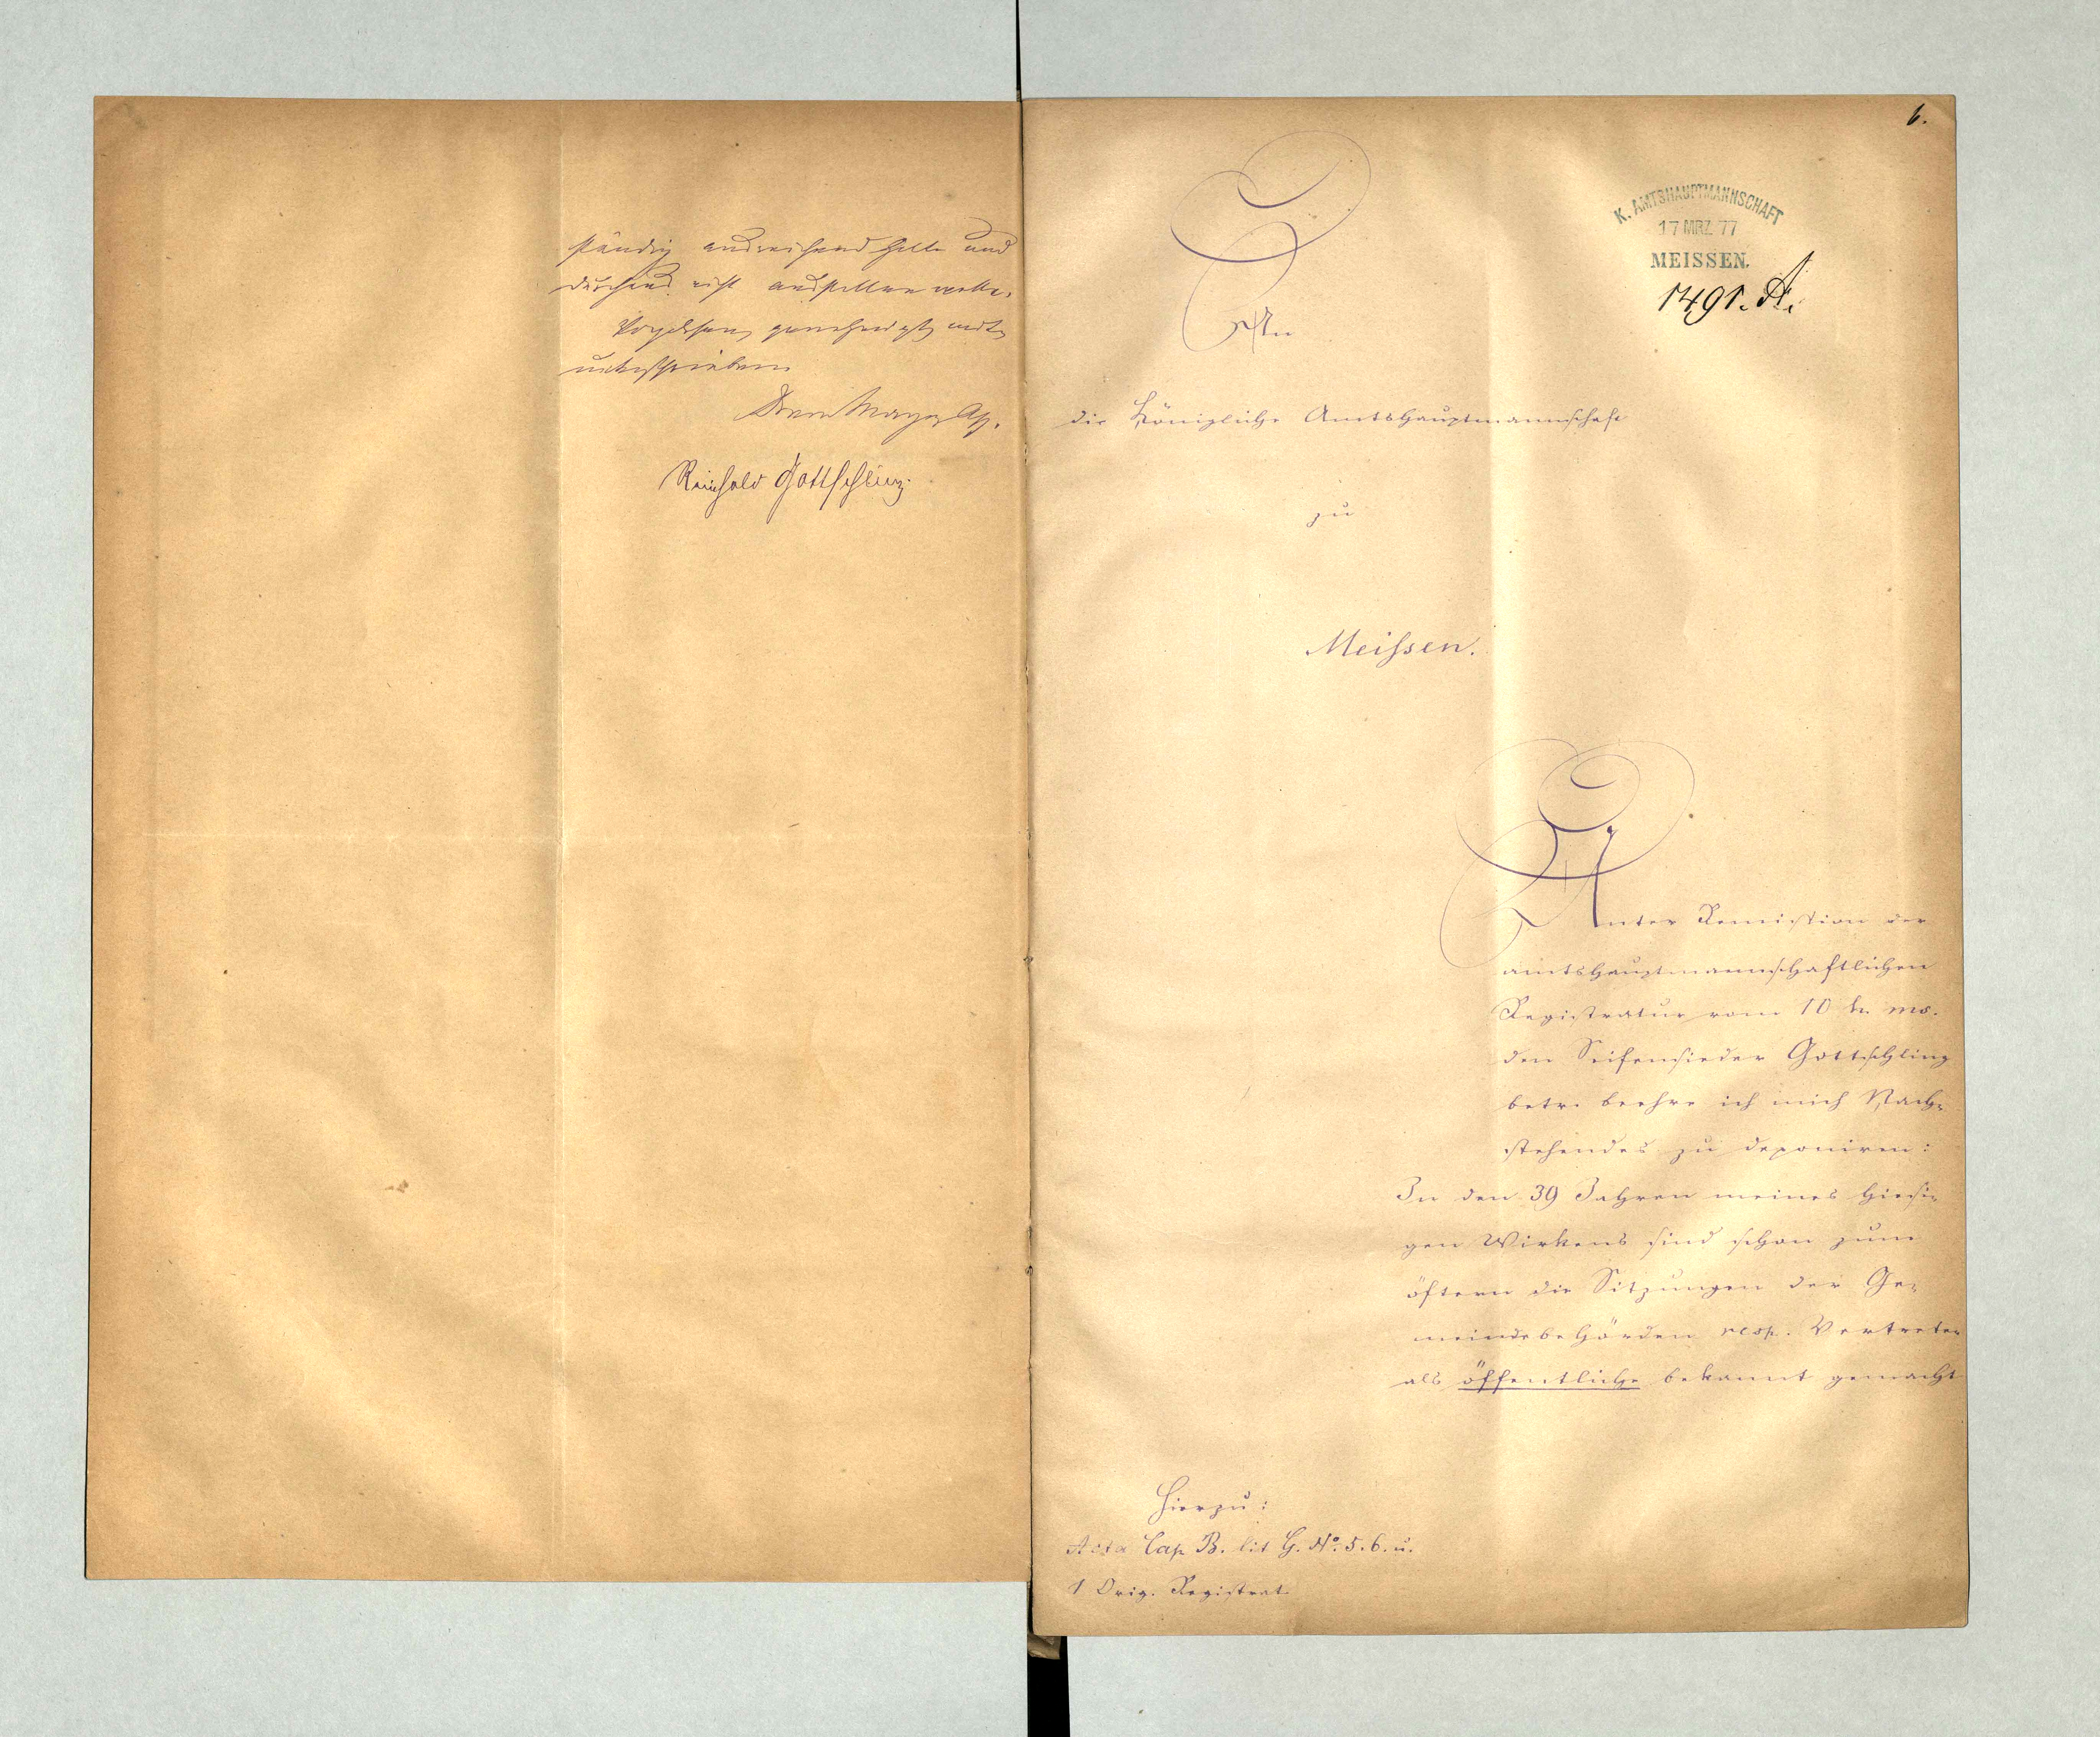 ständig ausreichend halte und
durchaus nicht ausstellen wolle.
Vorgelesen, genehmigt und
unterschrieben
Reinhold Gottschling.
6.
K. AMTSHAUPTMANNSCHAFT
17 MRZ. 77
MEISSEN.
1491. A.
An
die Königliche Amtshauptmannschaft
zu
Meißen.
Unter Remission der
amtshauptmannschaftlichen
Registratur vom 10 hu. ms.
den Seifensieder Gottschling
betr. beehre ich mich Nach-
stehendes zu deponiren:
In den 39 Jahren meines hiesi-
gen Wirkens sind schon zum
öftern die Sitzungen der Ge-
meindebehörden resp. Vertreter
als öffentliche bekannt gemacht
Hierzu:
Acta Cap B. lit G. No. 5. 6. u.
1 Orig. Registrat.